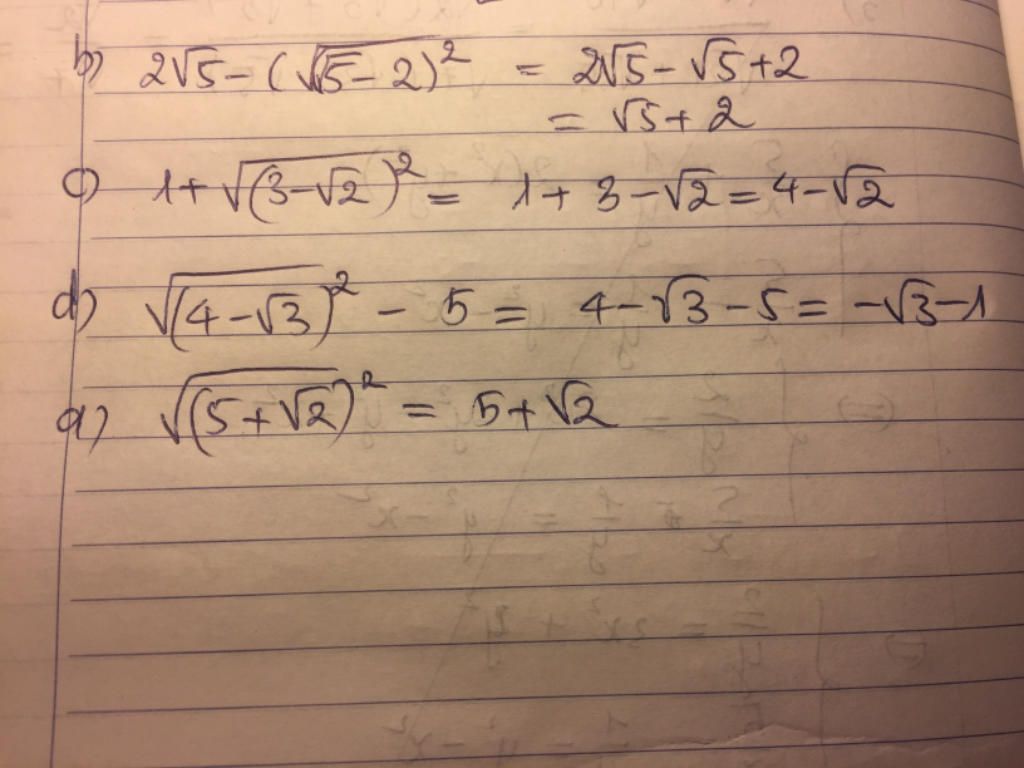 b) 2√5 - (√√5 - 2)² = 2√5 - √5 + 2
= √5 + 2
c) 1 + √(3 - √2)² = 1 + 3 - √2 = 4 - √2
d) √(4 - √3)² - 5 = 4 - √3 - 5 = -√3 - 1
a) √(5 + √2)² = 5 + √2